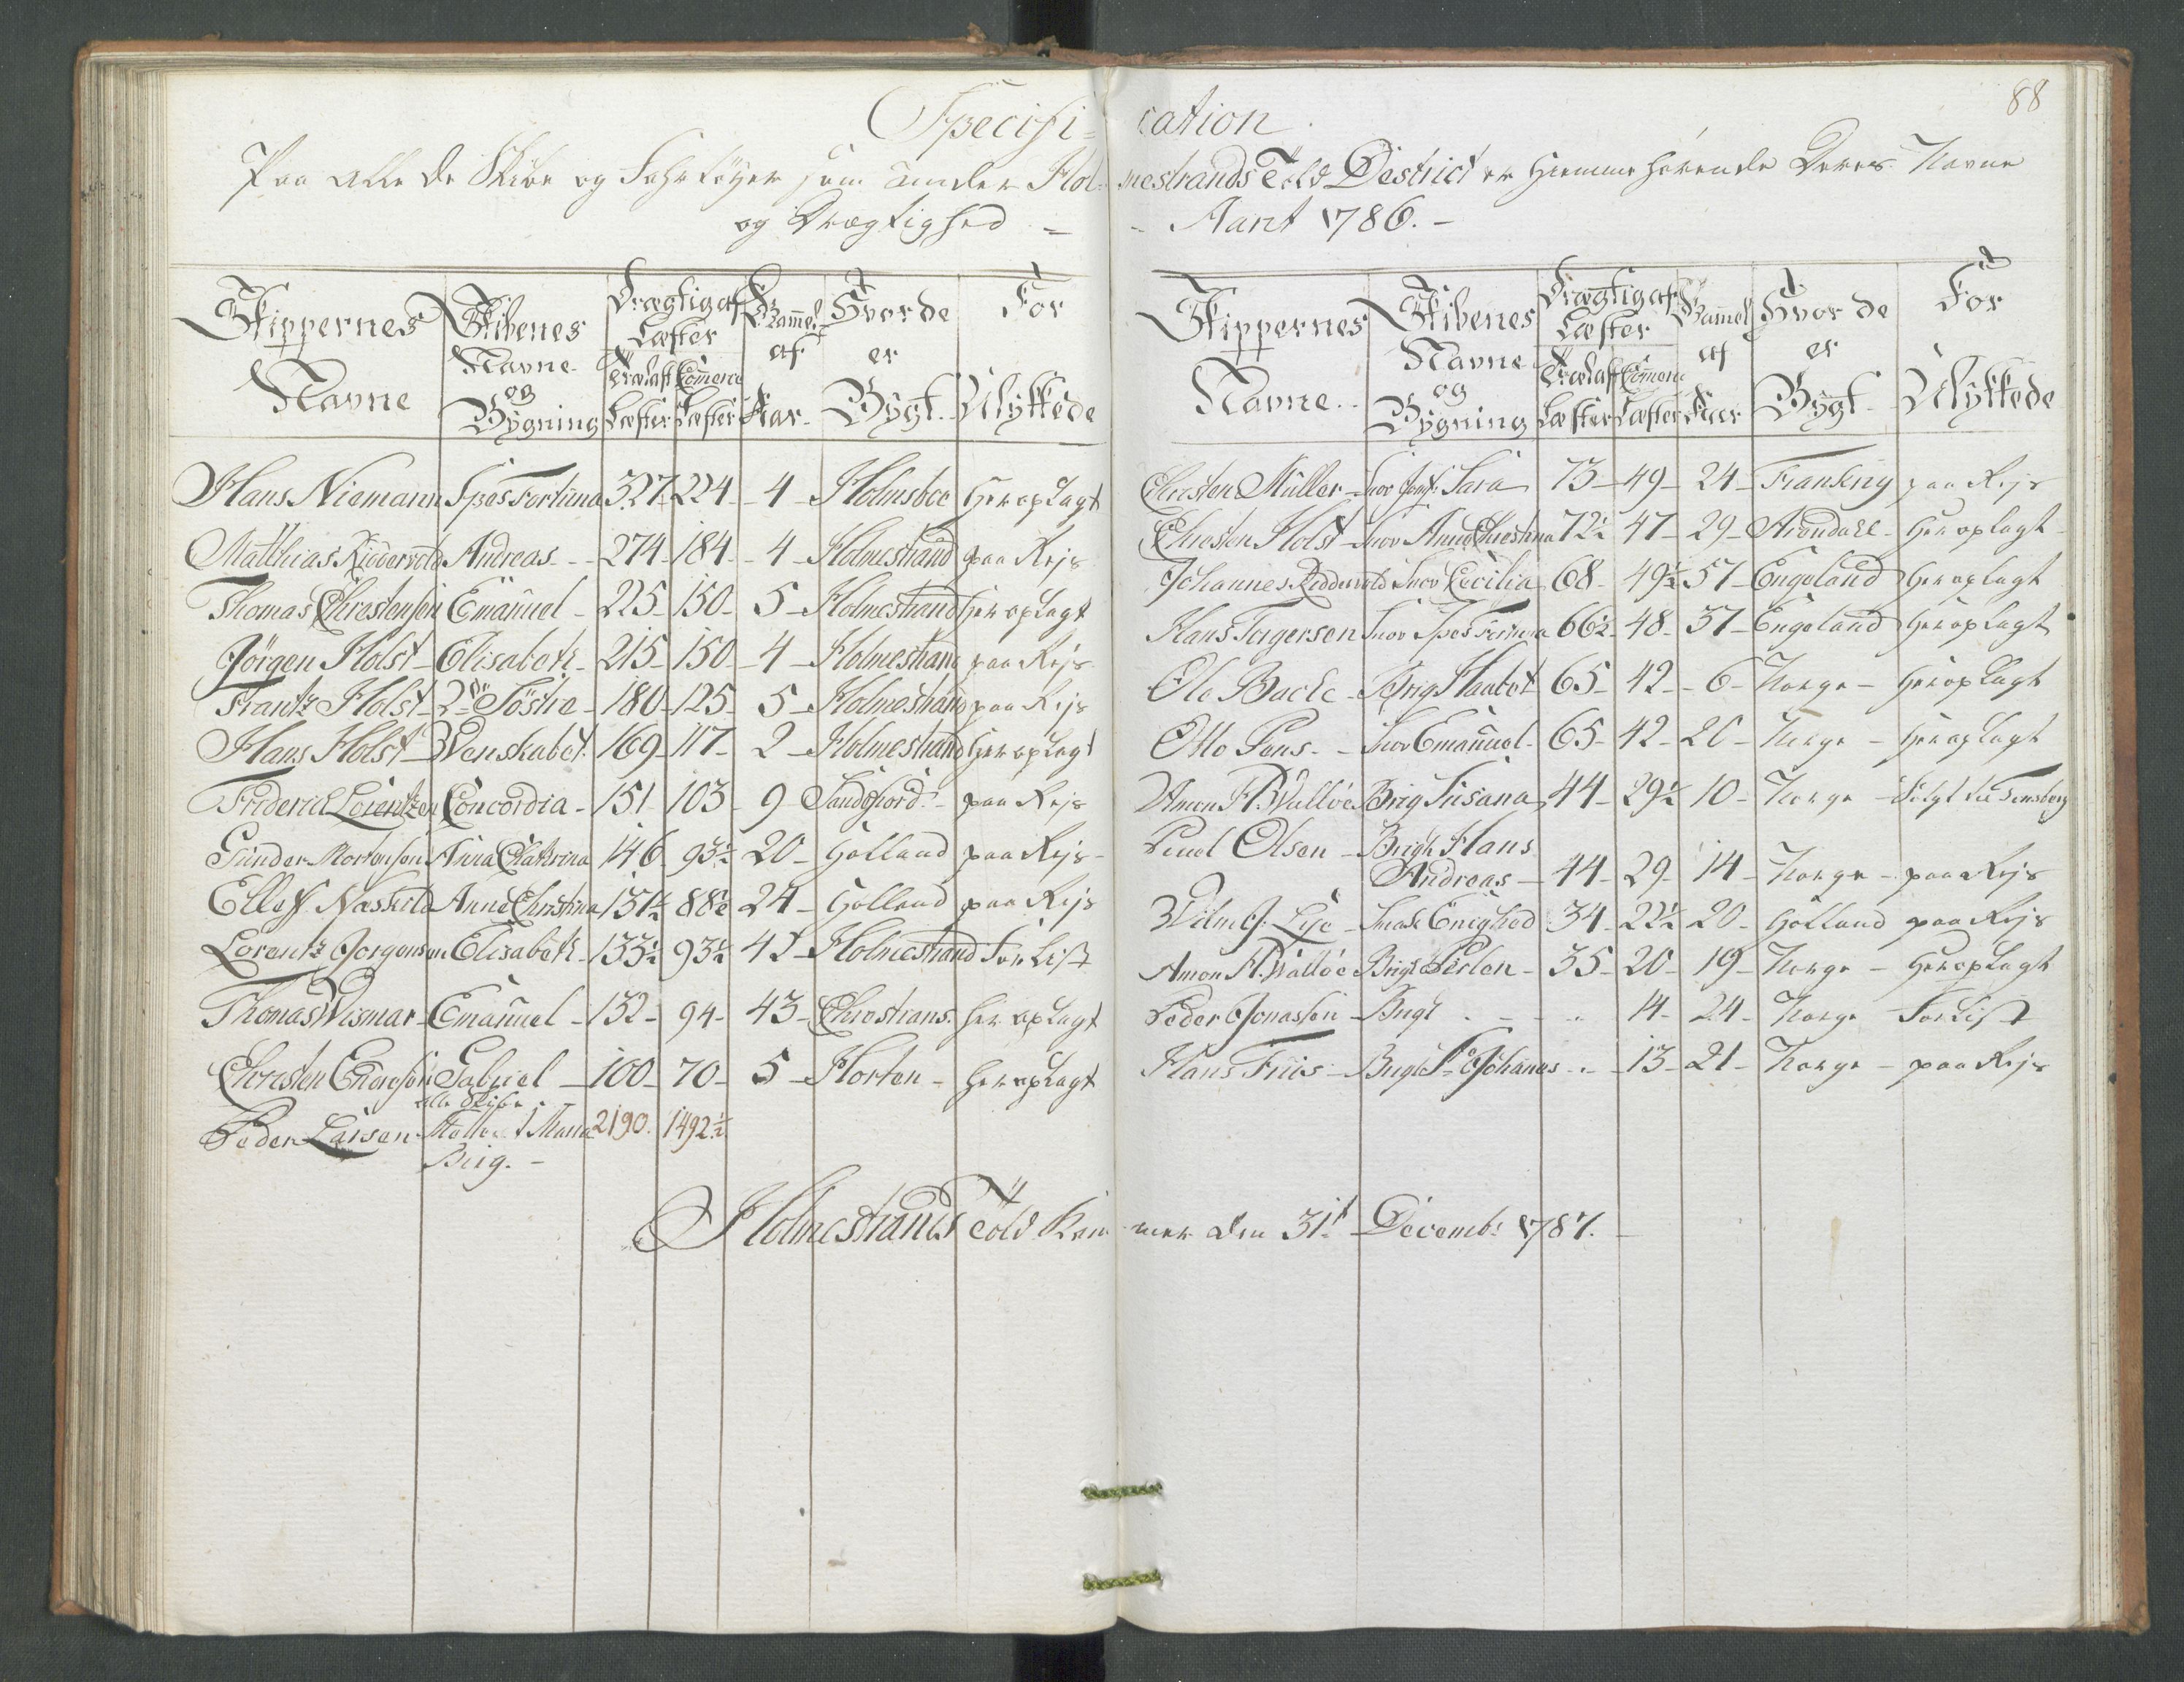 88
Specifi=cation.
Paa alle de Skibe og Fahrtøyer som under Hol=mestrands Told District er hiemmehørende Deres Navne
og Drægtighed = - Aaret 1786. -
Skippernes Navne | Skibenes Navne og Bygning | Drægtig af Læster | Trælast Læster | Commerce Læster | Gammel af Aar | Hvor de er Bygt. | For Ulykkede
Hans Niemann | Spes Fortuna | 327 | 224 | 4 | Holmsboe | Her oplagt
Matthias Riddervold | Andreas | 274 | 184 | 4 | Holmestrand | paa Rejs
Thomas Chrestensen | Emanuel | 225 | 150 | 5 | Holmestrand | Her oplagt
Jörgen Holst | Elisabeth | 215 | 150 | 4 | Holmestrand | paa Rejs
Frantz Holst | 2de Söstre | 180 | 125 | 5 | Holmestrand | paa Rejs
Hans Holst | Venskabet | 169 | 117 | 2 | Holmestrand | Her oplagt
Friderich Lorentzen | Concordia | 151 | 103 | 9 | Sandefiord | paa Rejs
Gunder Mortensen | Anna Cathrina | 146 | 93½ | 20 | Holland | paa Rejs
Ellef Naskild | Anne Christina | 137½ | 88½ | 24 | Holland | paa Rejs
Lorentz Jorgensen | Elisabeth | 133½ | 93½ | 41 | Holmestrand | Forlist
Thomas Wismar | Emanuel | 132 | 94 | 43 | Chrestians. | her oplagt
Chresten | Gabriel | 100 | 70 | 5 | Horten | her oplagt
alle Skibe
Peder Larsen | Maria | 2190. | 1492½
Brig. -
Skippernes Navne. | Skibenes Navne og Bygning | Drægtig af Læster | Trælast Læster | Commerce Læster | Gammel af Aar | Hvor de er Bygt | For Ulykkede
Chresten Müller | Snov Jomf: Sara | 73 | 49 | 24 | | paa Rejs
Chresten Holst | Snov Anna Chrestina | 72½ | 47 | 29 | Arendahl | Her oplagt
Johannes Riddervold | Snov Cecilia | 68 | 49½ | 57 | Engeland | Her oplagt
Hans Torgersen | Snov Spes Fortuna | 66½ | 48 | 37 | Engeland | Her oplagt
Ole Backe | Brig Haabet | 65 | 42 | 6 | Norge | Her oplagt
Otto Pens | Snov Emanuel | 65 | 42 | 20 | Norge | Her oplagt
Amon H. Walløe | Brig Susana | 44 | 29½ | 10 | Norge | Solgt til Tonsberg
Poul Olsen | Brigt Hans
Andreas | 44 | 29 | 14 | Norge | paa Rejs
Wilm J. Lÿe | Smak Enighed | 34 | 22½ | 20 | Holland | paa Rejs
Amon H. Walløe | Brigt Perlen | 35 | 20 | 19 | Norge | Her oplagt
Peder Jonassen | Brigt | 14 | 24 | Norge | Forlist
Hans Friis | Brigt St Johanes | 13 | 21 | Norge | paa Rejs
Holmestrands Told Kammer den 31t Decemb: 1787.